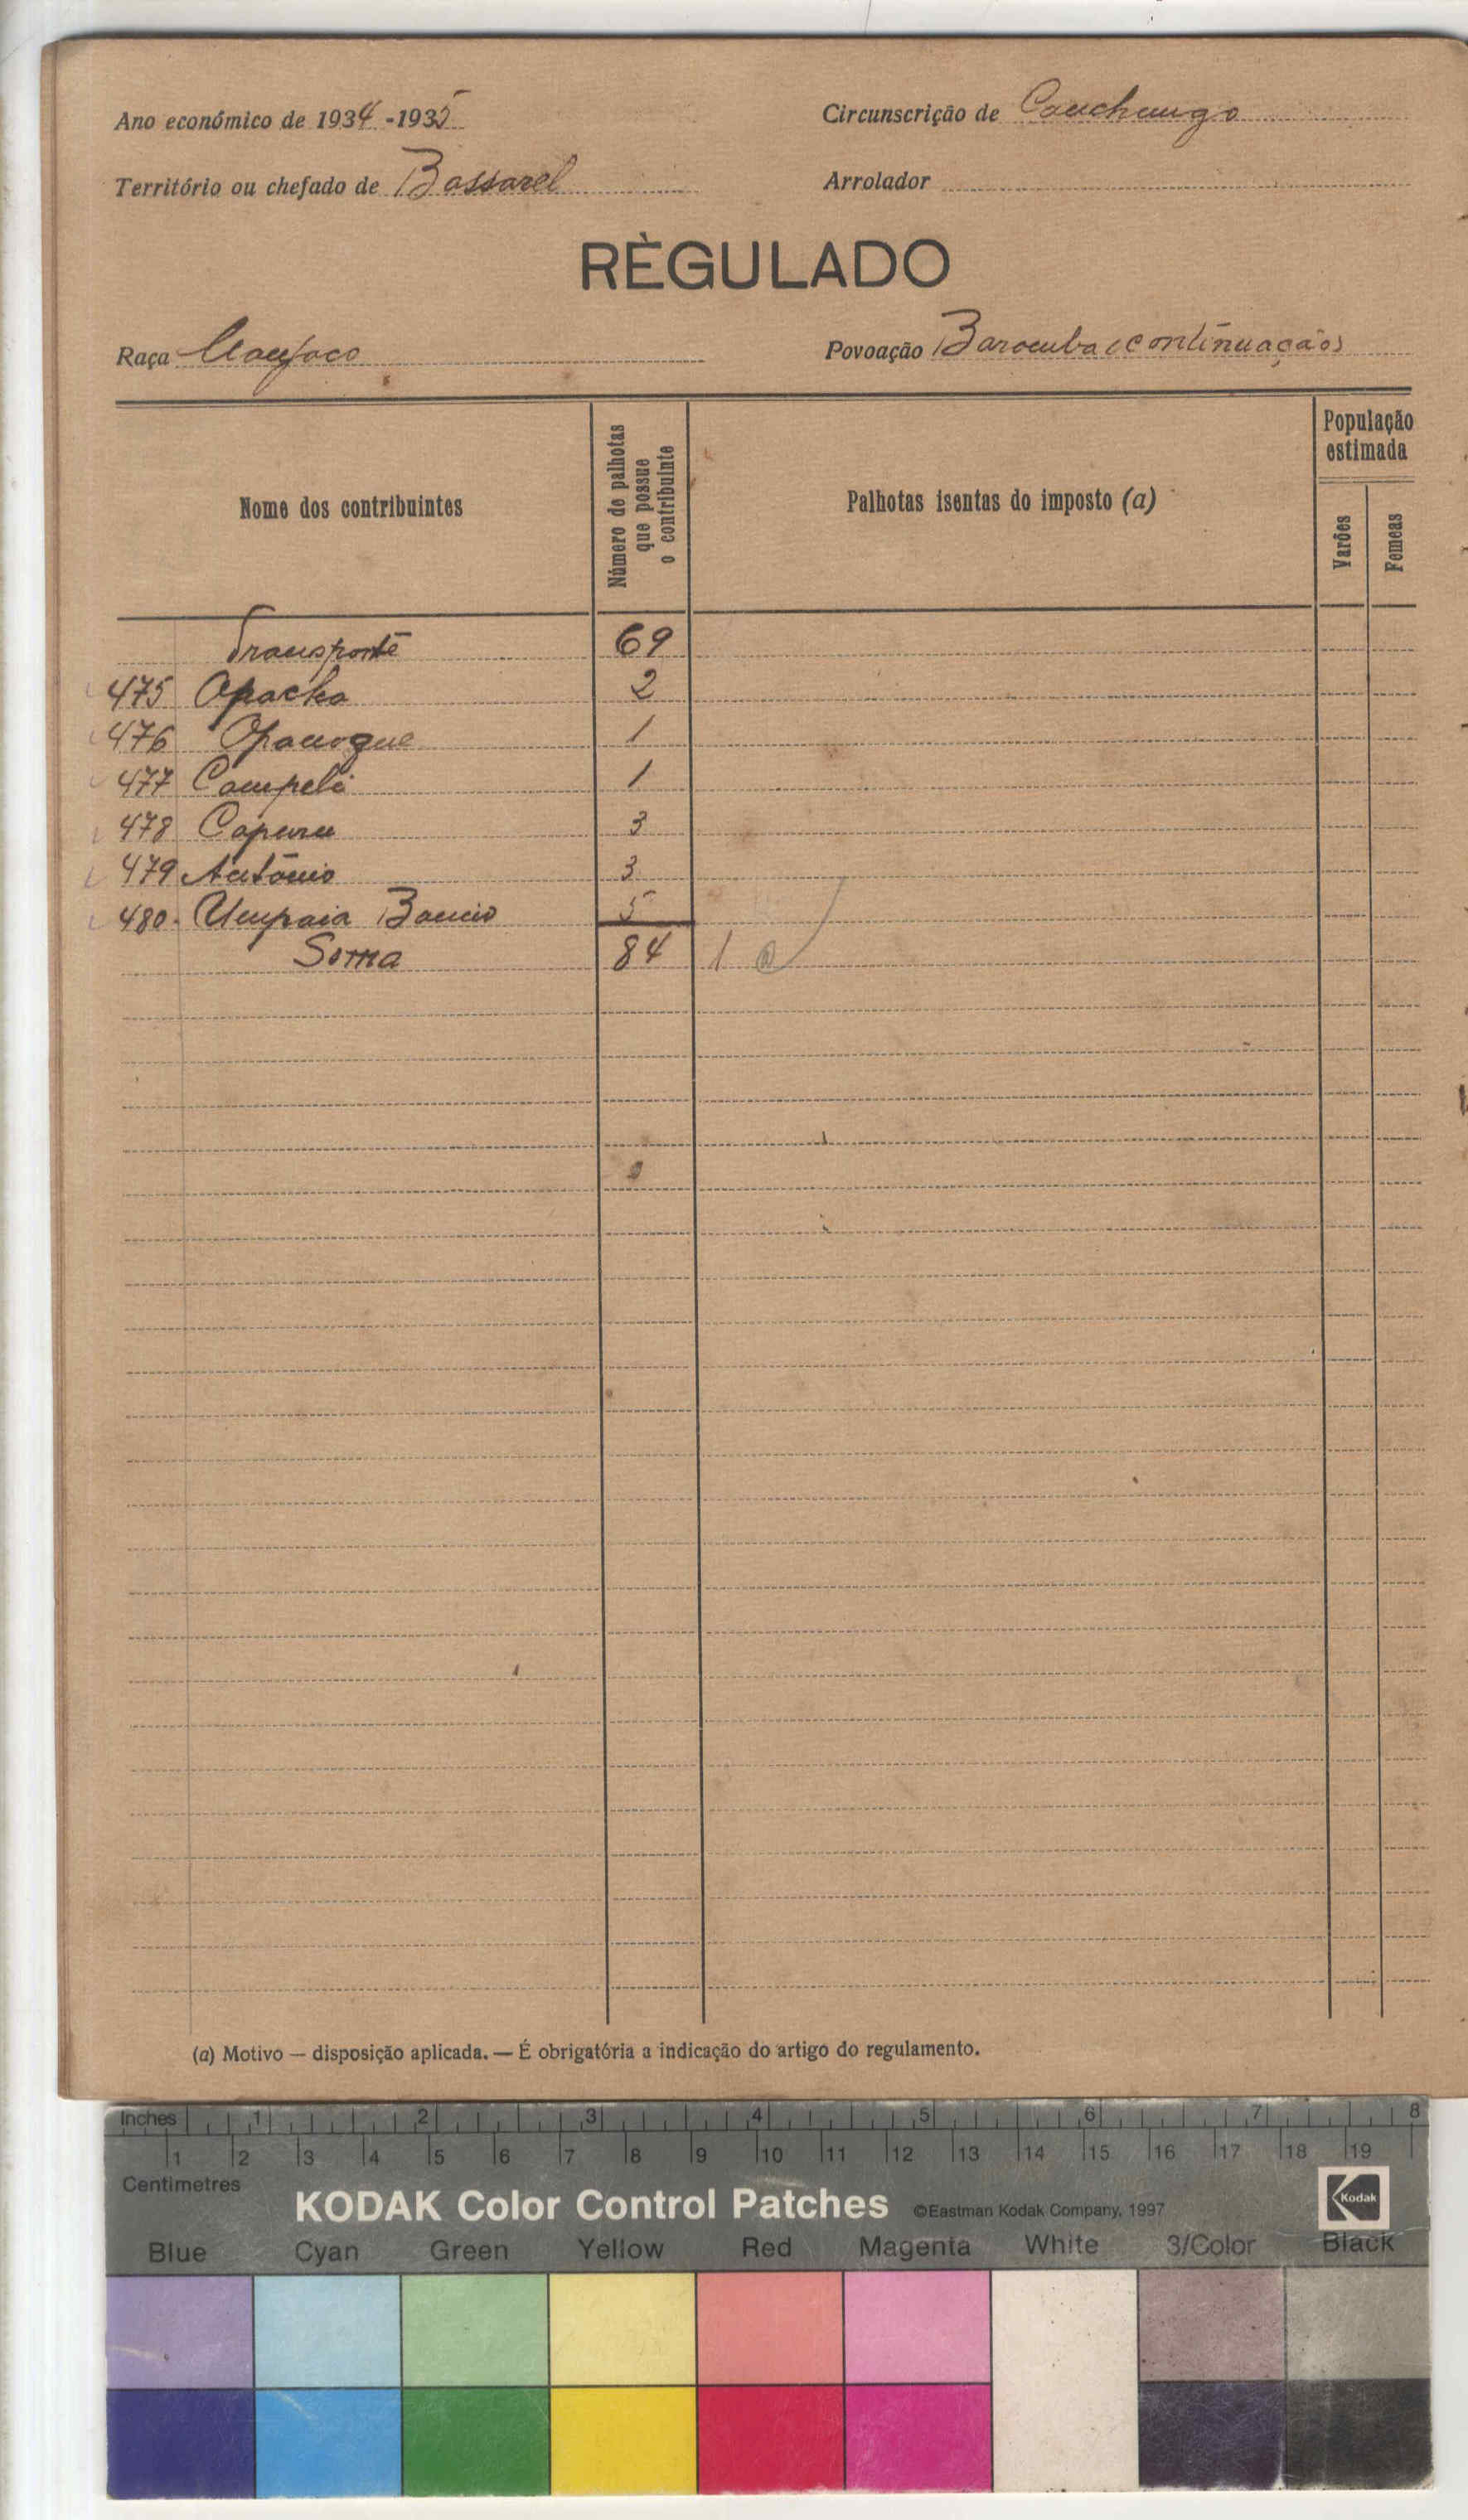 Ano económico de 1934-1935
Circunscrição de Canchungo
Território ou chefado de Bassarel
Arrolador
RÈGULADO
Raça Manjaco
Povoação Baramba (continuação)
Nome dos contribuintes
Número de palhotas que possue o contribuinte
Palhotas isentas do imposto (a)
População estimada
Varões
Femeas
Transporte 69
475 Apacha 2
476 Opanogue 1
477 Campeli 1
478 Capuru 3
479 António 3
480 Umpaia 5
Soma 84 1
(a) Motivo — disposição aplicada. — É obrigatória a indicação do artigo do regulamento.
Inches 1 2 3 4 5 6 7 8
1 2 3 4 5 6 7 8 9 10 11 12 13 14 15 16 17 18 19
Centimetres
KODAK Color Control Patches ©Eastman Kodak Company, 1997 Kodak
Blue Cyan Green Yellow Red Magenta White 3/Color Black